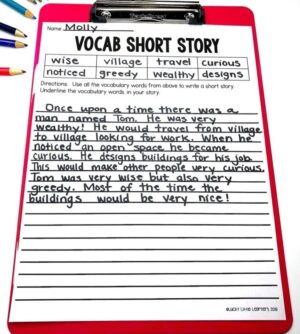 Name Molly
VOCAB SHORT STORY
wise village travel curious
noticed greedy wealthy designs
Directions: Use all the vocabulary words from above to write a short story.
Underline the vocabulary words in your story.
Once upon a time there was a
man named Tom. He was very
wealthy! He would travel from village
to village looking for work. When he
noticed an open space he became
curious. He designs buildings for his job.
This would make other people very curious.
Tom was very wise but also very
greedy. Most of the time the
buildings would be very nice!
©Lucky Little Learners